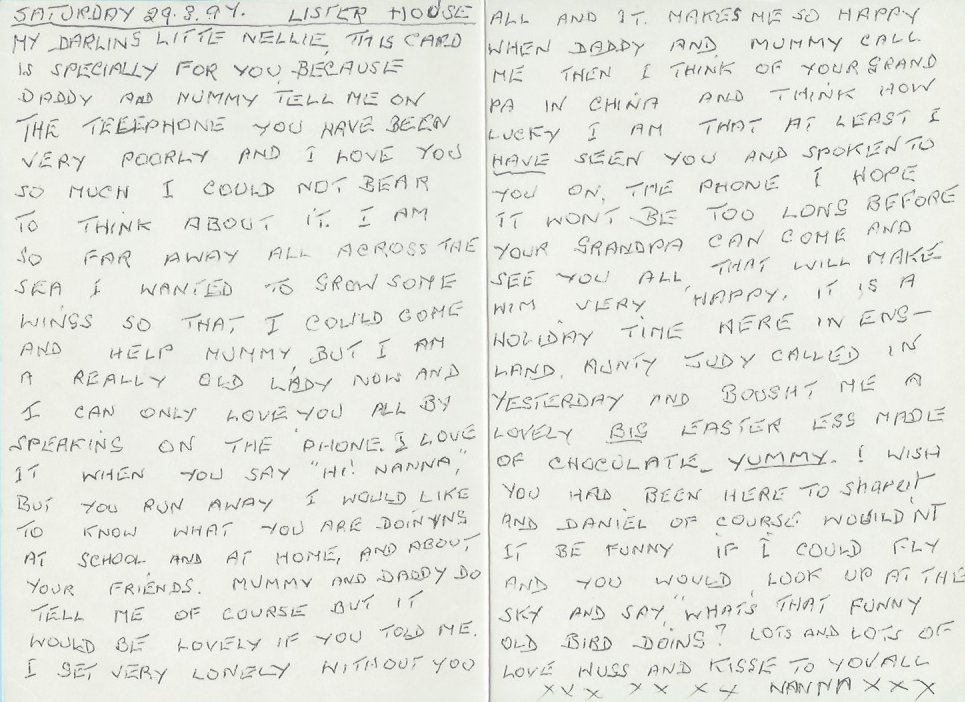 SATURDAY 29.3.94. LISTER HOUSE
MY DARLING LITTE NELLIE, THIS CARD
IS SPECIALLY FOR YOU, BECAUSE
DADDY AND MUMMY TELL ME ON
THE TELEPHONE YOU HAVE BEEN
VERY POORLY AND I LOVE YOU
SO MUCH I COULD NOT BEAR
TO THINK ABOUT IT. I AM
SO FAR AWAY ALL ACROSS THE
SEA I WANTED TO GROW SOME
WINGS SO THAT I COULD COME
AND HELP MUMMY BUT I AM
A REALLY OLD LADY NOW AND
I CAN ONLY LOVE YOU ALL BY
SPEAKING ON THE PHONE. I LOVE
IT WHEN YOU SAY "HI! NANNA,"
BUT YOU RUN AWAY I WOULD LIKE
TO KNOW WHAT YOU ARE DOINYNG
AT SCHOOL AND AT HOME, AND ABOUT
YOUR FRIENDS. MUMMY AND DADDY DO
TELL ME OF COURSE BUT IT
WOULD BE LOVELY IF YOU TOLD ME.
I GET VERY LONELY WITHOUT YOU
ALL AND IT. MAKES ME SO HAPPY
WHEN DADDY AND MUMMY CALL
ME THEN I THINK OF YOUR GRAND
PA IN CHINA AND THINK HOW
LUCKY I AM THAT AT LEAST I
HAVE SEEN YOU AND SPOKEN TO
YOU ON, THE PHONE I HOPE
IT WONT BE TOO LONG BEFORE
YOUR GRANDPA CAN COME AND
SEE YOU ALL, THAT WILL MAKE
HIM VERY HAPPY. IT IS A
HOLIDAY TIME HERE IN ENG-
LAND. AUNTY JUDY CALLED IN
YESTERDAY AND BOUGHT ME A
LOVELY BIG EASTER EGG MADE
OF CHOCULATE_ YUMMY. I WISH
YOU HAD BEEN HERE TO shareit
AND DANIEL OF COURSE WOUILD'NT
IT BE FUNNY IF I COULD FLY
AND YOU WOULD LOOK UP AT THE
SKY AND SAY, "WHATS THAT FUNNY
OLD BIRD DOING? LOTS AND LOTS OF
LOVE HUGS AND KISSE TO YOU ALL
XXX XX XX NANNA XXX